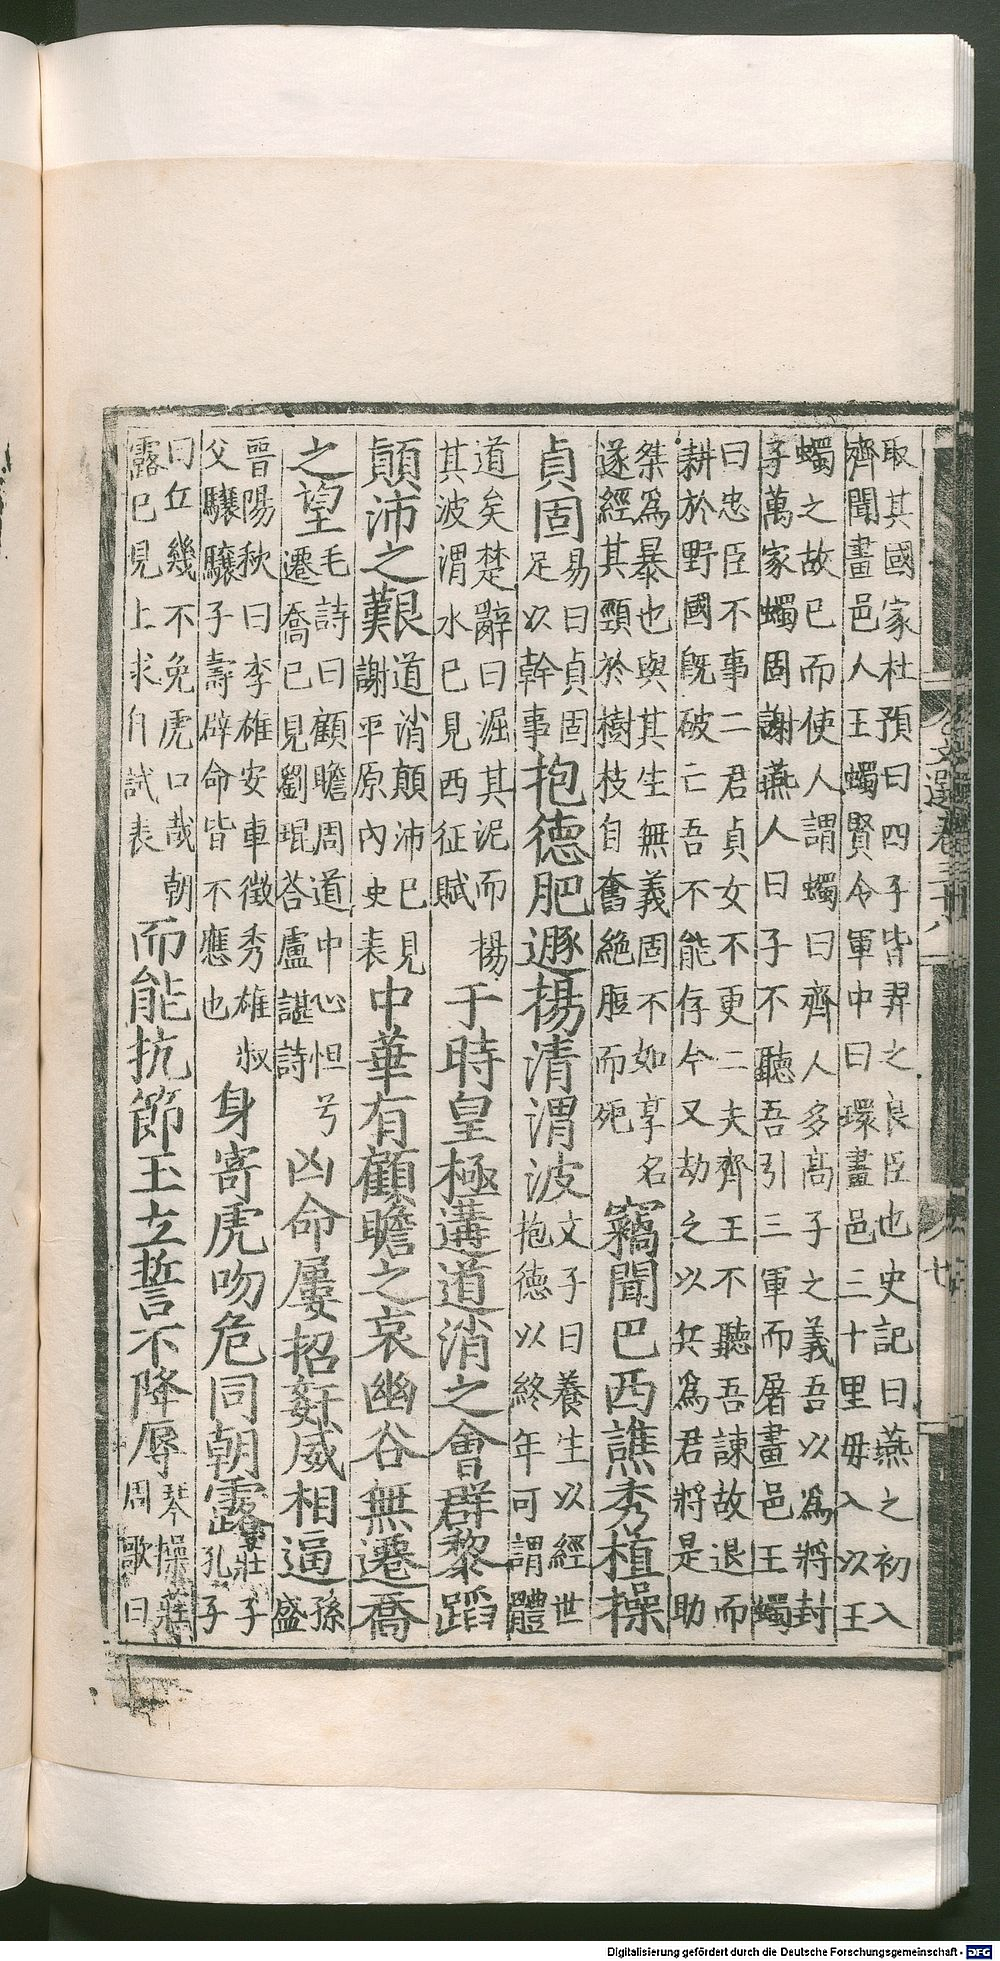 取其國家杜預曰四子皆羿之良臣也史記曰燕之初入
齊聞畫邑人王蠋賢令軍中曰環畫邑三十里毋入以王
蠋之故已而使人謂蠋曰齊人多高子之義吾以爲將封
子萬家蠋固謝燕人曰子不聽吾引三軍而屠畫邑王蠋
曰忠臣不事二君貞女不更二夫齊王不聽吾諫故退而
耕於野國旣破亡吾不能存今又劫之以兵爲君將是助
桀爲暴也與其生無義固不如享名
遂經其頸於樹枝自奮絶脰而死
竊聞巴西譙秀植操
貞固
易曰貞固
足以幹事
抱德肥遯揚清渭波
文子曰養生以經世
抱德以終年可謂體
道矣楚辭曰淈其泥而揚
其波渭水已見西征賦
于時皇極遘道消之會群黎蹈
顚沛之艱
道消顛沛已見
謝平原內史表
中華有顧瞻之哀幽谷無遷喬
之望
毛詩曰顧瞻周道中心怛兮
遷喬已見劉琨荅盧諶詩
凶命屢招姦威相逼
孫盛
晉陽秋曰李雄安車徵秀雄叔
父驤驤子壽辟命皆不應也
身寄虎吻危同朝露
莊子
孔子
曰丘幾不免虎口哉朝
露已見上求自試表
而能抗節玉立誓不降辱
琴操莊
周歌曰
文選卷三十八